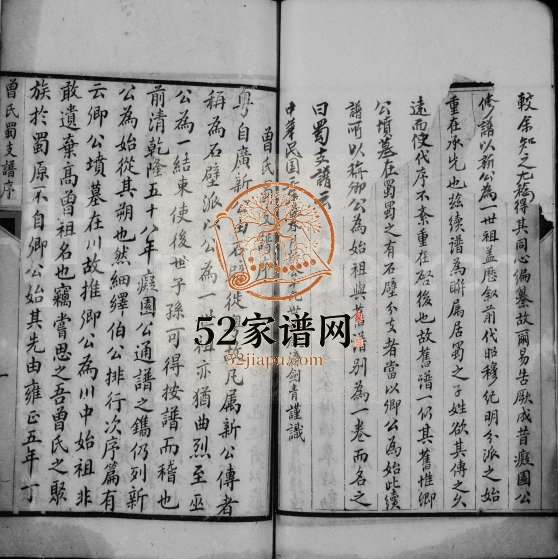 較余知之尤熟得其同心编纂故爾易告厥成昔癡園公
修譜以新公為一世祖盖歷叙前代昭穆紀明分派之始
重在承先也兹續譜為聯属居蜀之子姓欲其傳之久
遠而使代序不紊重在啓後也故舊譜一仍其舊惟卿
公墳墓在蜀蜀之有石壁分支者當以卿公為始此續
譜所以称卿公為始祖與舊譜别為一卷而名之
曰蜀支譜云
中華民国 劍青謹識
曾氏
粤自廣新 石壁徙 凡属新公傳者
稱為石壁派以公為一世祖亦猶曲烈至巫
公為一結束使後世子孫可得按譜而稽也
前清乾隆五十八年癡園公通譜之鐫仍列新
公為始從其朔也然細繹伯公排行次序篇有
云卿公墳墓在川故推卿公為川中始祖非
敢遺棄高曾祖名也竊嘗思之吾曾氏之聚
族於蜀原不自卿公始其先由雍正五年丁
曾氏蜀支譜序
一
52家谱网
52jiapu.com